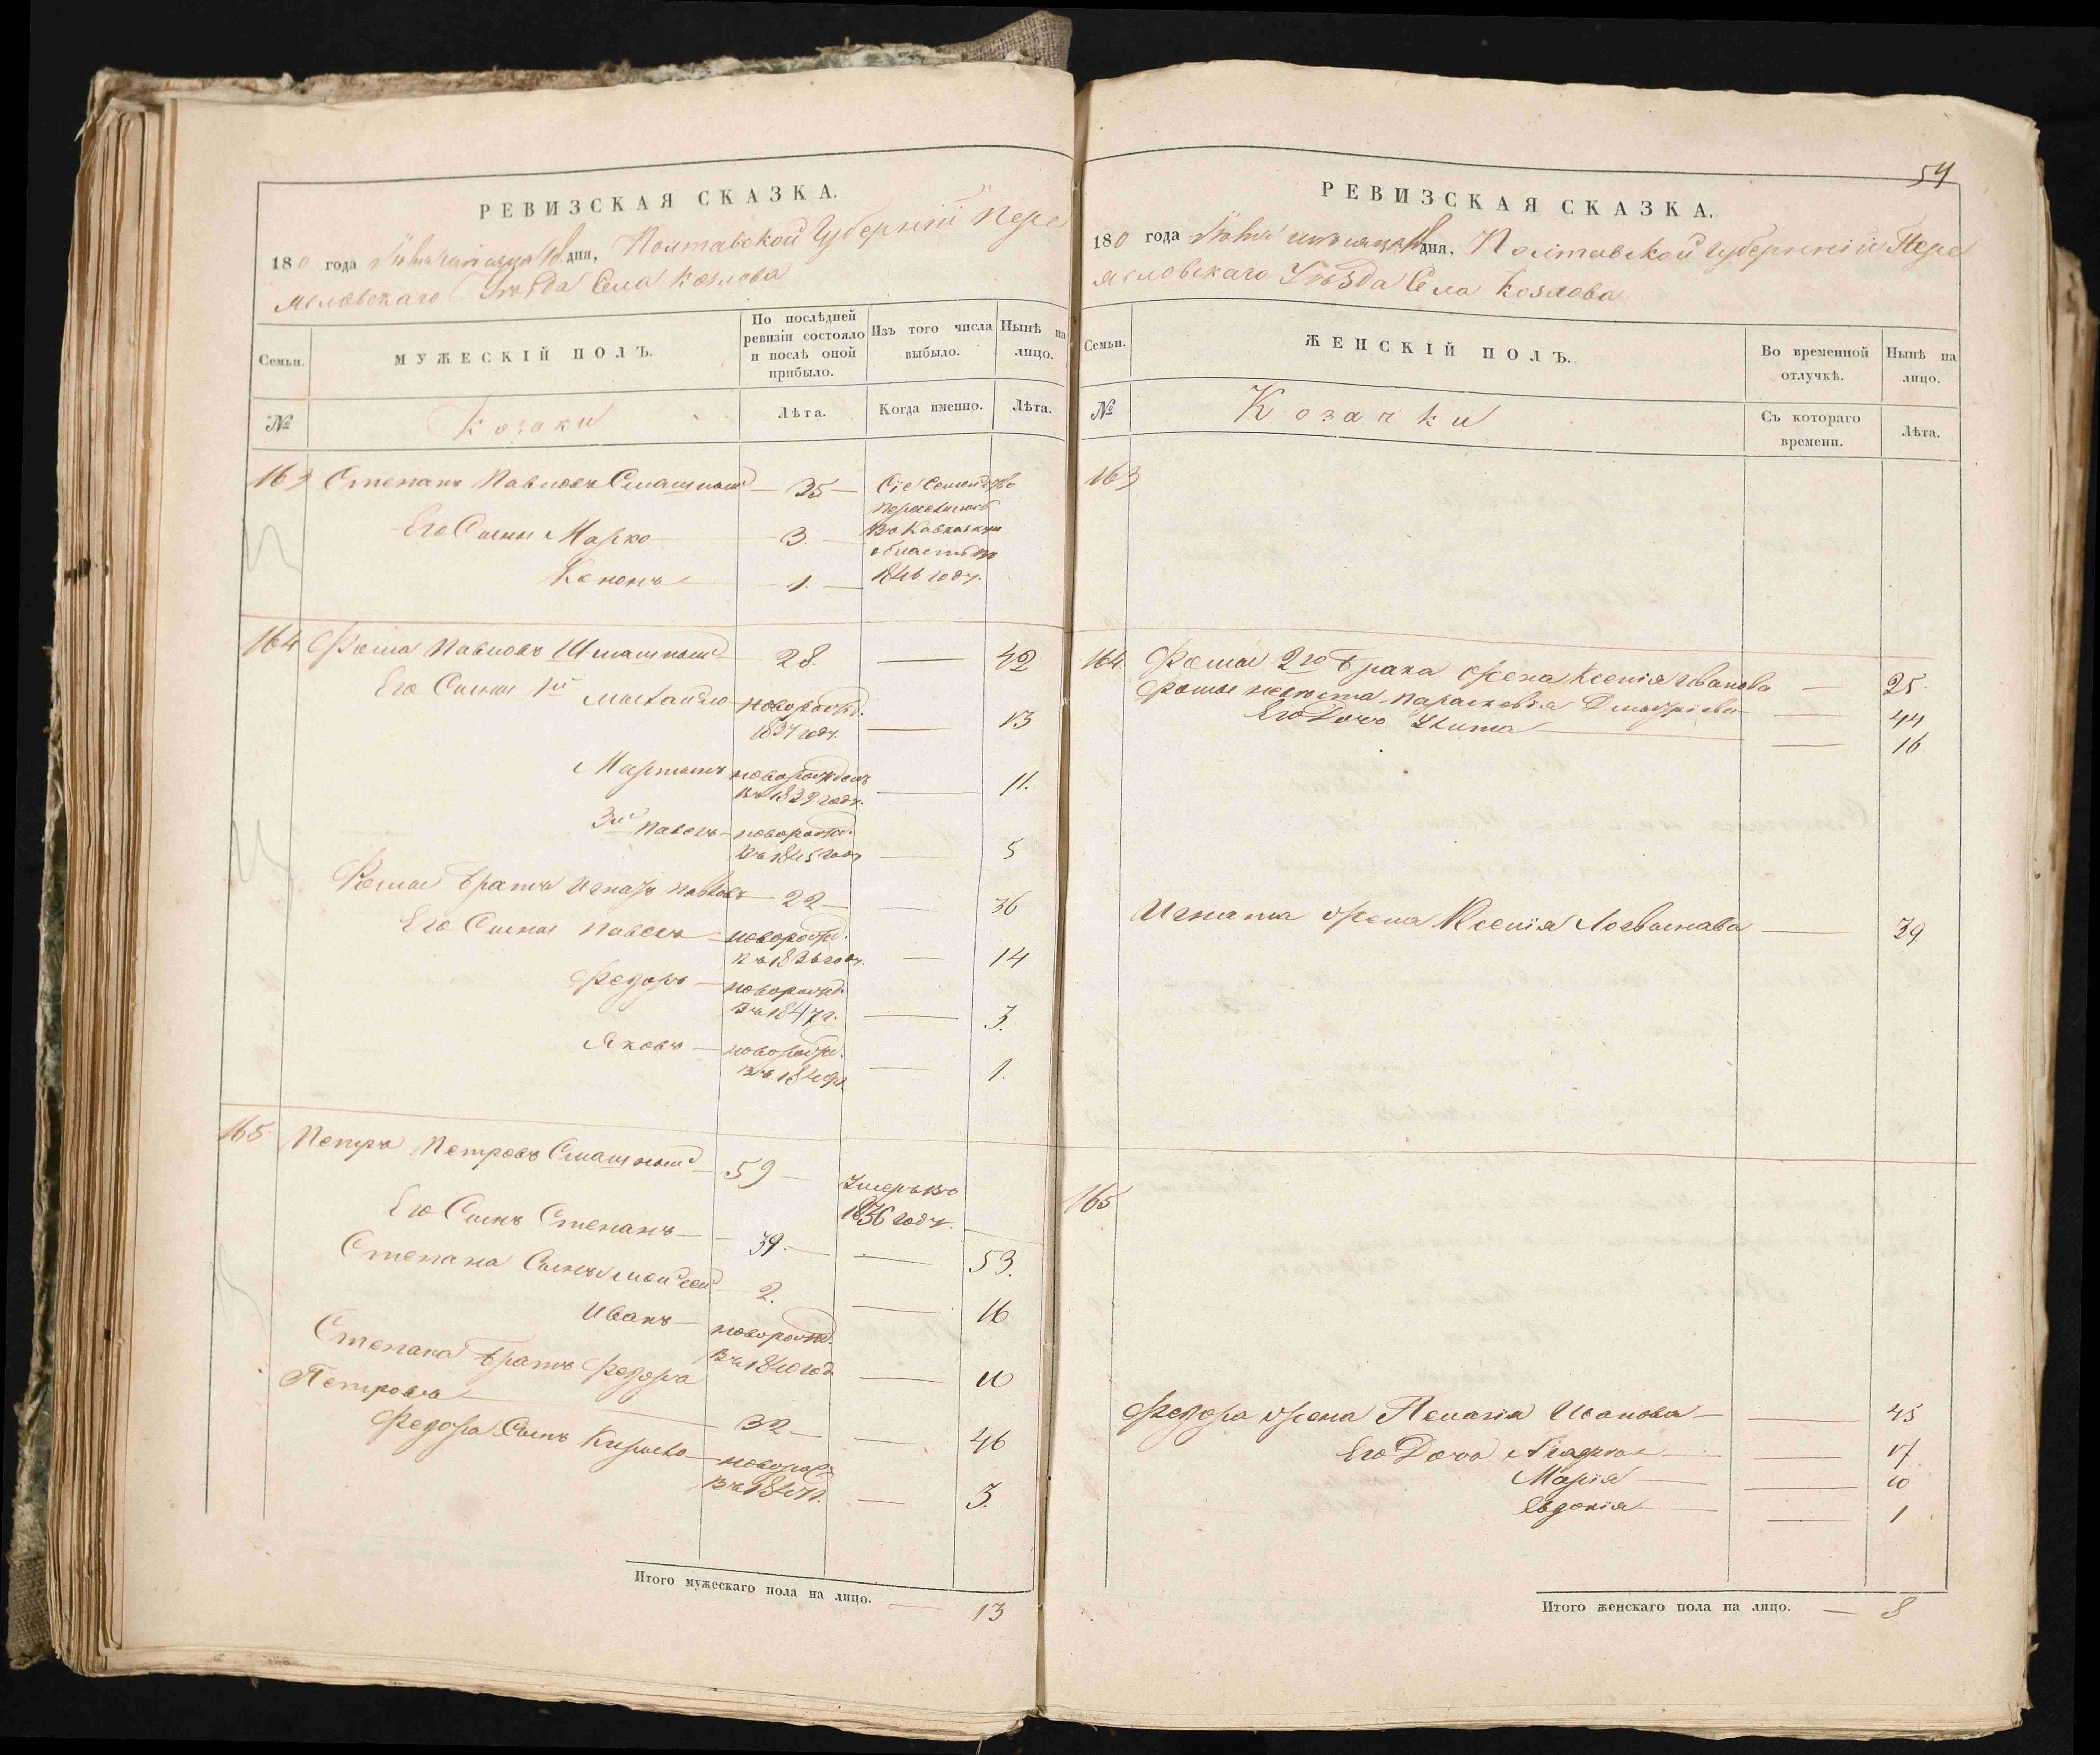 РЕВИЗСКАЯ СКАЗКА.
180 года Июня дня, Полтавской Губерніи Пере
яславскаго Уезда Села Козлова
Семьи.
МУЖЕСКІЙ ПОЛЪ.
По послѣдней ревизіи состояло и послѣ оной прибыло.
Изъ того числа выбыло.
Нынѣ на лицо.
№
Козаки
Лѣта.
Когда именно.
Лѣта.
163 Степанъ Павловъ 35 Сіе Семейство
переселилось
Его Сыны Марко 3. въ Кавказкую
область въ
Кононъ 1. 1846 году.
164 Фома Павловъ 28. 42
Его Сыны 1й Михайло новорожд. 13
1837 году.
Мартынъ новорожденъ 11.
въ 1839 году.
3й Павелъ новорожд. 5
въ 1845 году
Фомы братъ Игнатъ Павловъ 22 36
Его Сыны Павелъ новорожд.
въ 1836 году. 14
Федоръ новорожд.
въ 1847 г. 3.
Яковъ новорожд.
1.
165 Петръ Петровъ 59 Умеръ въ
1836 году.
Его Сынъ Степанъ 39. 53.
Степана Сыны Моисей 2. 16
Иванъ новорожд.
въ 1840 год 10
Степана братъ Федоръ
Петровъ 32 46
Федора Сынъ Кирило новорож
въ 1847 г. 3.
Итого мужескаго пола на лицо. 13
54
РЕВИЗСКАЯ СКАЗКА.
180 года Июня дня, Полтавской Губерніи Пере
яславскаго Уезда Села Козлова
Семьи.
ЖЕНСКІЙ ПОЛЪ.
Во временной отлучкѣ.
Нынѣ на лицо.
№
Козачки
Съ котораго времени.
Лѣта.
163
164. Фомы 2го брака жена Ксенія Иванова 25.
Фомы невѣста Парасковія Дмитріева 44
Его Дочь Улита 16
Игната жена Ксенія Логвинова 39
165
Федора жена Пелагія Иванова 45
Его Дочь 17
Марія 10
Евдокія 1
Итого женскаго пола на лицо. 8